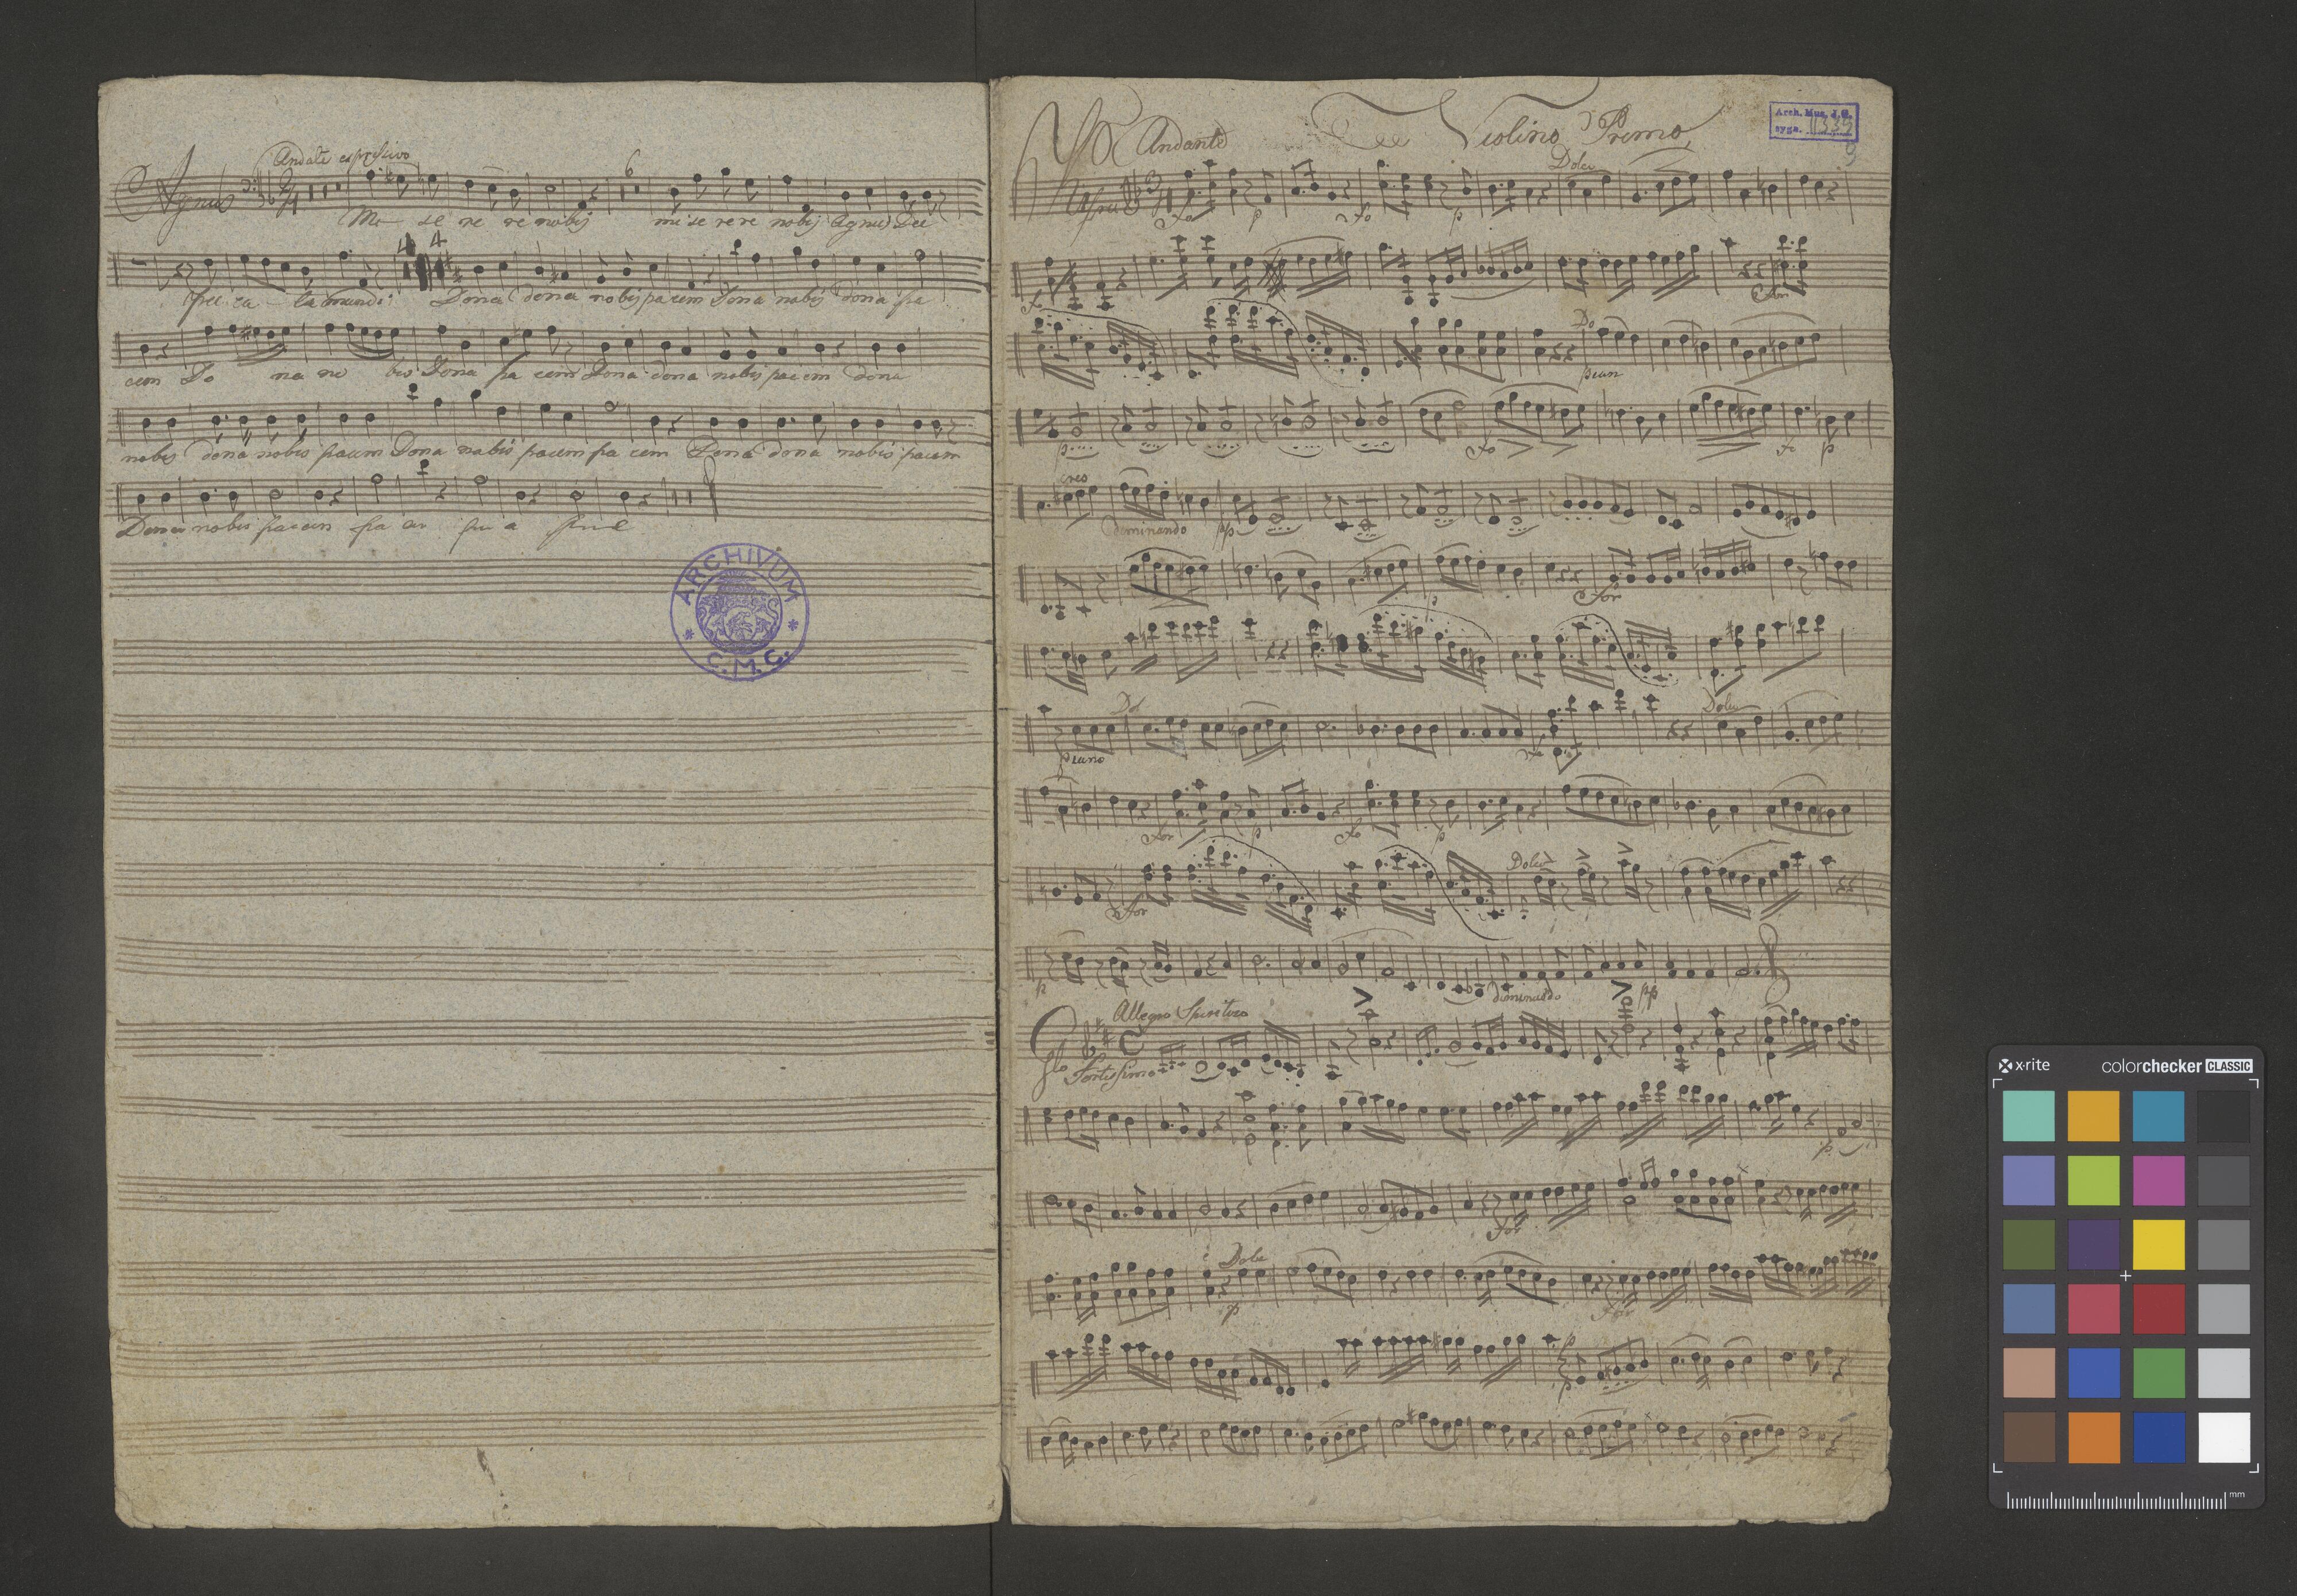 Andate espresivo
Agnus
6
Me se re re nobis mi se re re nobis Agnus Dei
4 4
pec ca ta mundi Dona dona nobis pacem Dona nobis dona pa
cem Do na no bis Dona pa cem Dona dona nobis pacem dona
nobis dona nobis pacem Dona nobis pacem pa cem Dona dona nobis pacem
Dona nobis pacem pa
ARCHIVUM
* C.M.C. *
Andante
Violino Premo
Arch. Mus. J. G.
sygn. 1335
Dolce
fo p fo p
fo
For
Do
pian
p fo fo p
cres
deminando pp
For
p
Dol Dolce
piano
For p fo p
Dolce
For
p diminuedo pp
Allegro Spiritozo
Glo Fortissimo
p
For
Dolce
p For
p